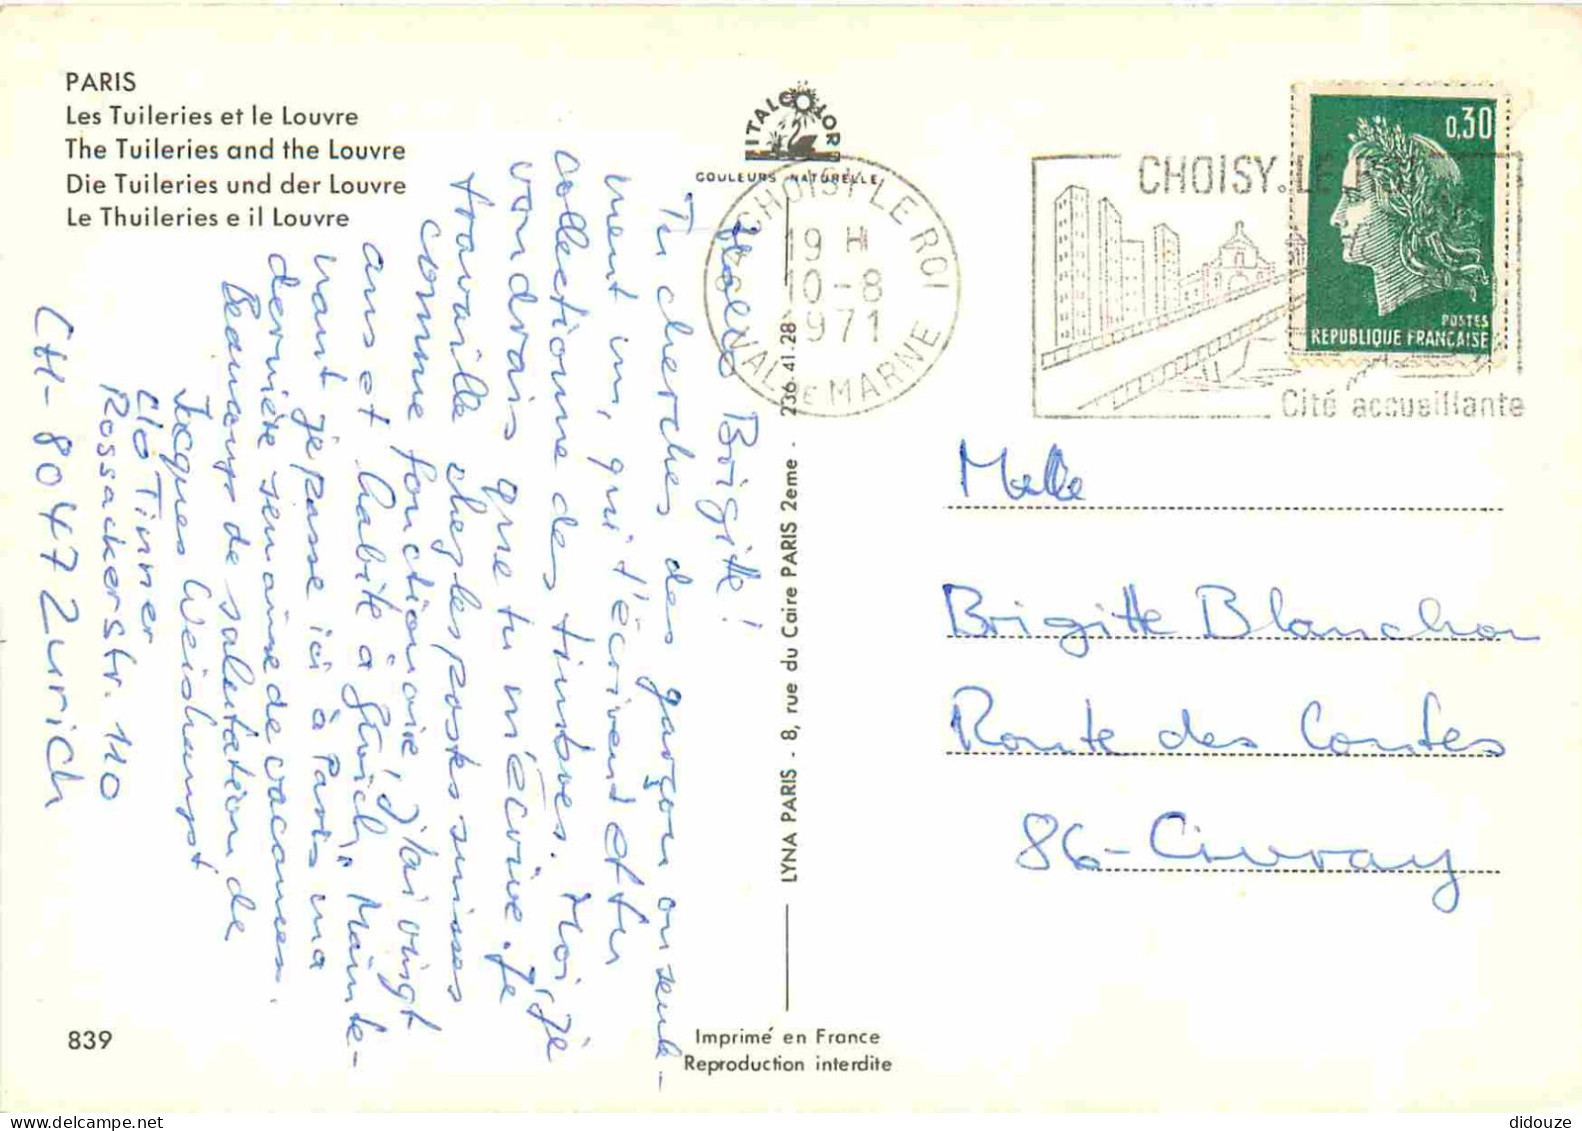 PARIS
Les Tuileries et le Louvre
The Tuileries and the Louvre
Die Tuileries und der Louvre
Le Thuileries e il Louvre
ITALCOLOR
COULEURS NATURELLE
Hallo Brigitte!
Tu cherches des garçon ou seule-
ment un, qui t'écrivent et tu
collectionne des timbres. Moi, je
voudrais que tu m'écrive. Je
travaille chez les postes suisses
comme fonctionaire, j'ai vingt
ans et habite à Zürich. Mainte-
nant je passe ici à Paris ma
dernière semaine de vacances.
Beaucoup de salutation de
Jacques Weishaupt
c/o Tinner
Rossackerstr. 110
CH-8047 Zurich
839
LYNA PARIS - 8, rue du Caire PARIS 2eme - 236.41.28
Imprimé en France
Reproduction interdite
CHOISY LE ROI
19 H
10-8
1971
VAL DE MARNE
CHOISY.LE ROI
Cité accueillante
0,30
POSTES
REPUBLIQUE FRANCAISE
Melle
Brigitte Blanchon
Route des Coutes
86-Civray
didouze